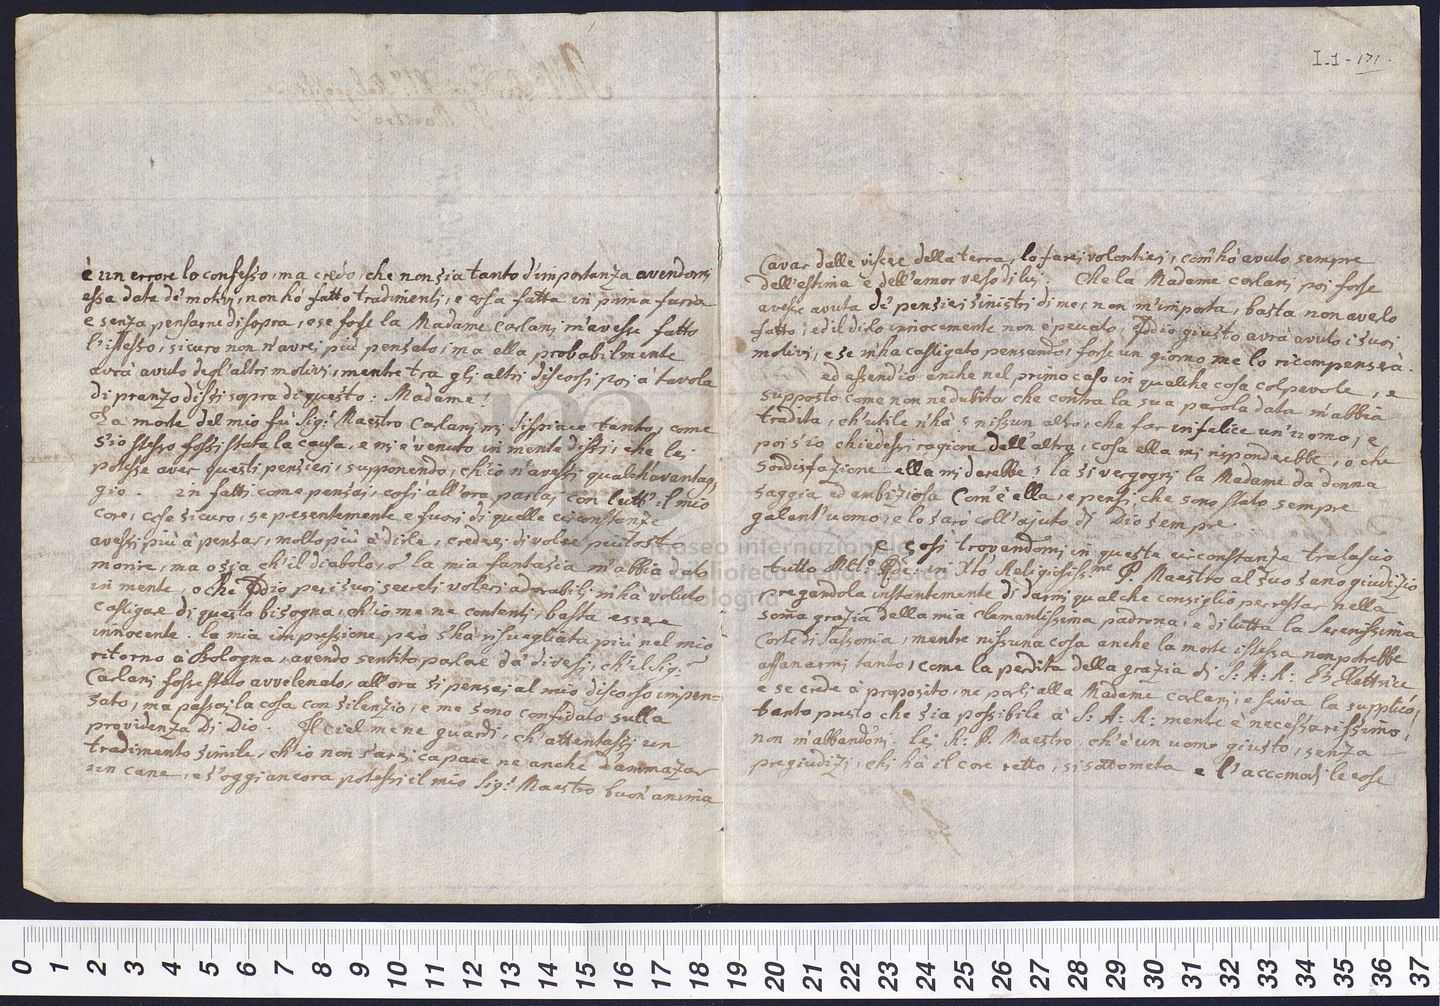 I.1-171
è un errore lo confesso, ma credo, che non sia tanto d'importanza avendomi
essa data de' motivi, non hò fatto tradimenti, e cosa fatta in prima furia
e senza pensarne di sopra, e se fosse la Madame Carlani m'avesse fatto
l'istesso, sicuro non n'avrei più pensato, ma ella probabilmente
avrà avuto degl'altri motivi, mentre tra gli altri discorsi poi à tavola
di pranzo dissi sopra di questo: Madame!
La morte del mio fù Sig.r Maestro Carlani mi dispiace tanto, come
s'io stesso fossi stata la causa, e mi è venuto in mente dissi, che lei
potesse aver questi pensieri, supponendo, ch'io n'avessi qualch'avantag
gio. in fatti come pensai, così all'ora parlai con tutt' il mio
core, cosa sicuro, se presentemente e fuori di quelle circonstanze
avessi più à pensar, molto più à dirle, crederei di voler piutosto
morire, ma o sia ch'il diabolo, o' la mia fantasia m'abbia dato
in mente, o che Iddio per i suoi secreti voleri adorabili m'hà voluto
castigar di questo bisogna, ch'io me ne contenti, basta essere
innocente. la mia impressione però s'ha risuegliata più nel mio
ritorno à Bologna, avendo sentito parlar da diversi, ch'il Sig.r
Carlani fosse stato avvelenato, all'ora si pensai al mio discorso impen-
sato, ma passai la cosa con silenzio, e me sono confidato sulla
providenza di Dio. Il ciel me ne guardi, ch'attentassi un
tradimento simile, ch'io non sarei capace ne anche d'ammazar
un cane, e s'oggi ancora potessi il mio Sig.r Maestro buon'anima
Cavar dalle viscere della terra, lo farei volontieri, com'hò avuto sempre
dell'estima e dell'amor verso di lui. Che la Madame Carlani poi forse
avesse avuta de' pensieri sinistri di me, non m'importa, basta non averlo
fatto, ed il dirlo innocemente non è peccato, Iddio giusto avrà avuto i suoi
motivi, e se m'ha castigato pensando, forse un giorno me lo ricompenserà.
ed essend'io anche nel primo caso in qualche cosa colpevole, e
supposto come non ne dubito che contra la sua parola data m'abbia
tradita, ch'utile n'hà? nissun altro, che far infelice un'uomo, e
poi s'io chiedessi ragione dell'altro, cosa ella mi risponderebbe, o che
soddisfazione ella mi darebbe? la si vergogni la Madame da donna
saggia ed ambiziosa com'è ella, e pensi, che sono stato sempre
galant'uomo, e lo sarò coll'ajuto di Dio sempre.
e così trovandomi in queste circonstanze tralascio
tutto in Xto Religiosiss:me P. Maestro al suo sano giudizio
pregandola instantemente di darmi qualche consiglio per restar nella
somma grazia della mia clementissima padrona, e di tutta la Serenissima
Corte di Sassonia, mentre nissuna cosa anche la morte istessa non potrebbe
affanarmi tanto, come la perdita della grazia di S: A: R: Elettrice
e se crede à proposito, ne parli alla Madame Carlani, e scriva la supplico,
tanto presto che sia possibile à S: A: R: mentre è necessarissimo,
non m'abbandoni. Lei R: P. Maestro, ch'è un uomo giusto, senza
pregiudizi, chi hà il core retto, si sottometa e l'accomodi le cose
museo internazionale
e biblioteca della musica
di bologna
0 1 2 3 4 5 6 7 8 9 10 11 12 13 14 15 16 17 18 19 20 21 22 23 24 25 26 27 28 29 30 31 32 33 34 35 36 37